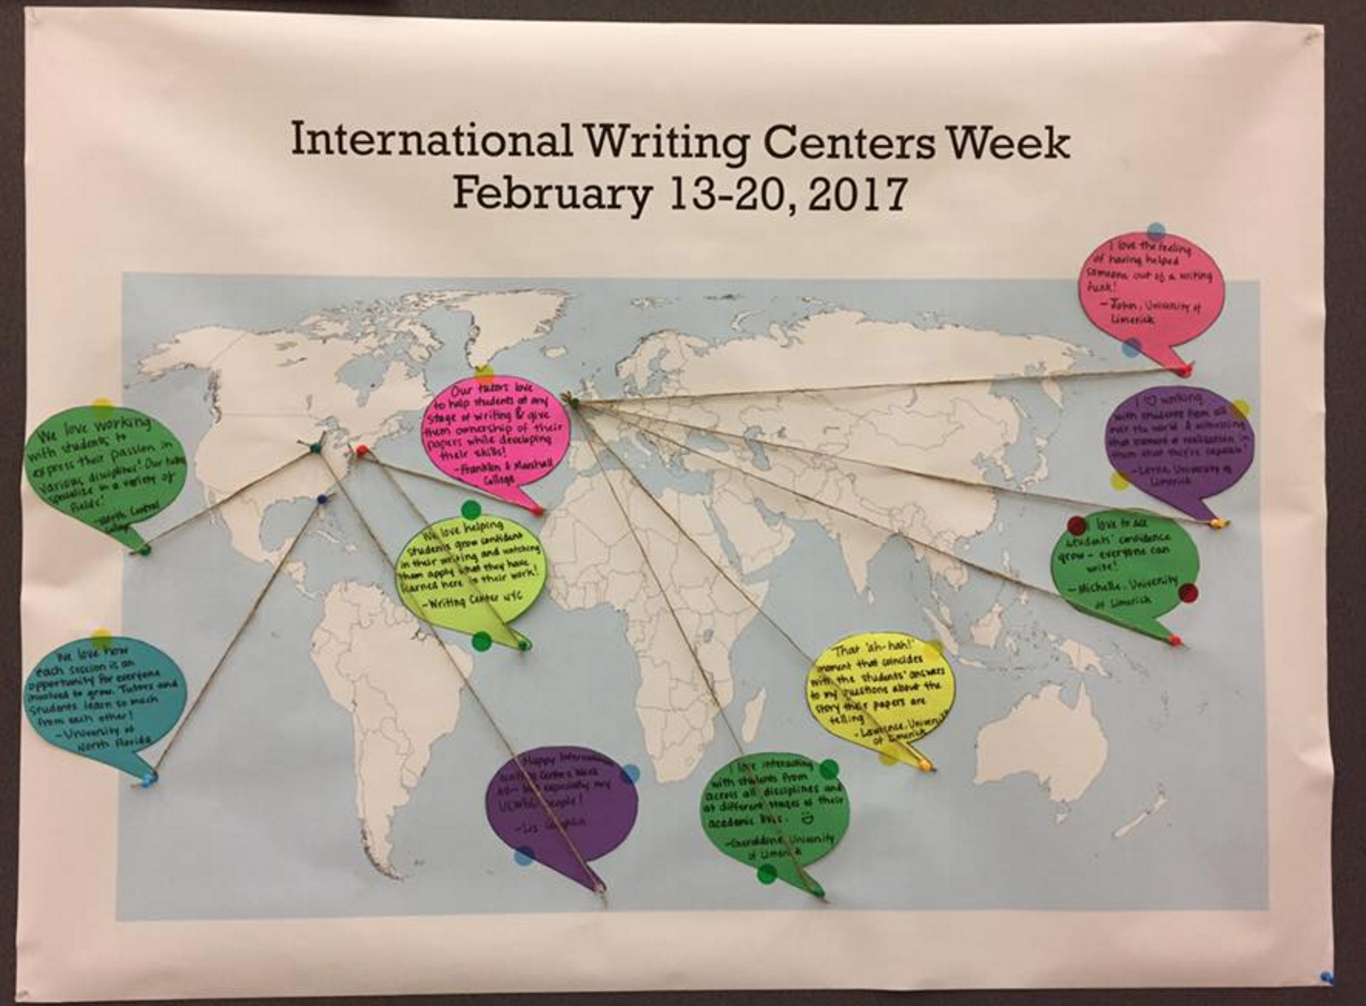 International Writing Centers Week
February 13-20, 2017
I love the feeling
of having helped
someone out of a writing
funk!
-John, University of
Limerick
Our tutors love
to help students at any
stage of writing & give
them ownership of their
papers while developing
their skills!
-Franklin & Marshall
College
I ♡ working
with students from all
over the world & witnessing
that moment of realisation in
them that they're capable
University of
Limerick
We love working
with students to
express their passion in
various disciplines! Our tutors
specialize in a variety of
fields!
-North Central
College
We love helping
students grow confident
in their writing and watching
them apply what they have
learned here in their work!
-Writing Center NYC
love to see
students' confidence
grow - everyone can
write!
-Michelle, University
of Limerick
We love how
each session is an
opportunity for everyone
involved to grow. Tutors and
students learn so much
from each other!
-University of
North Florida
That 'ah-hah!'
moment that coincides
with the students' answers
to my questions about the
story their papers are
telling
-Lawrence, University
of Limerick
Happy International
Writing Centers Week
especially my
people!
-Liz
I love interacting
with students from
across all disciplines and
at different stages of their
academic lives. ☺
-Geraldine, University
of Limerick